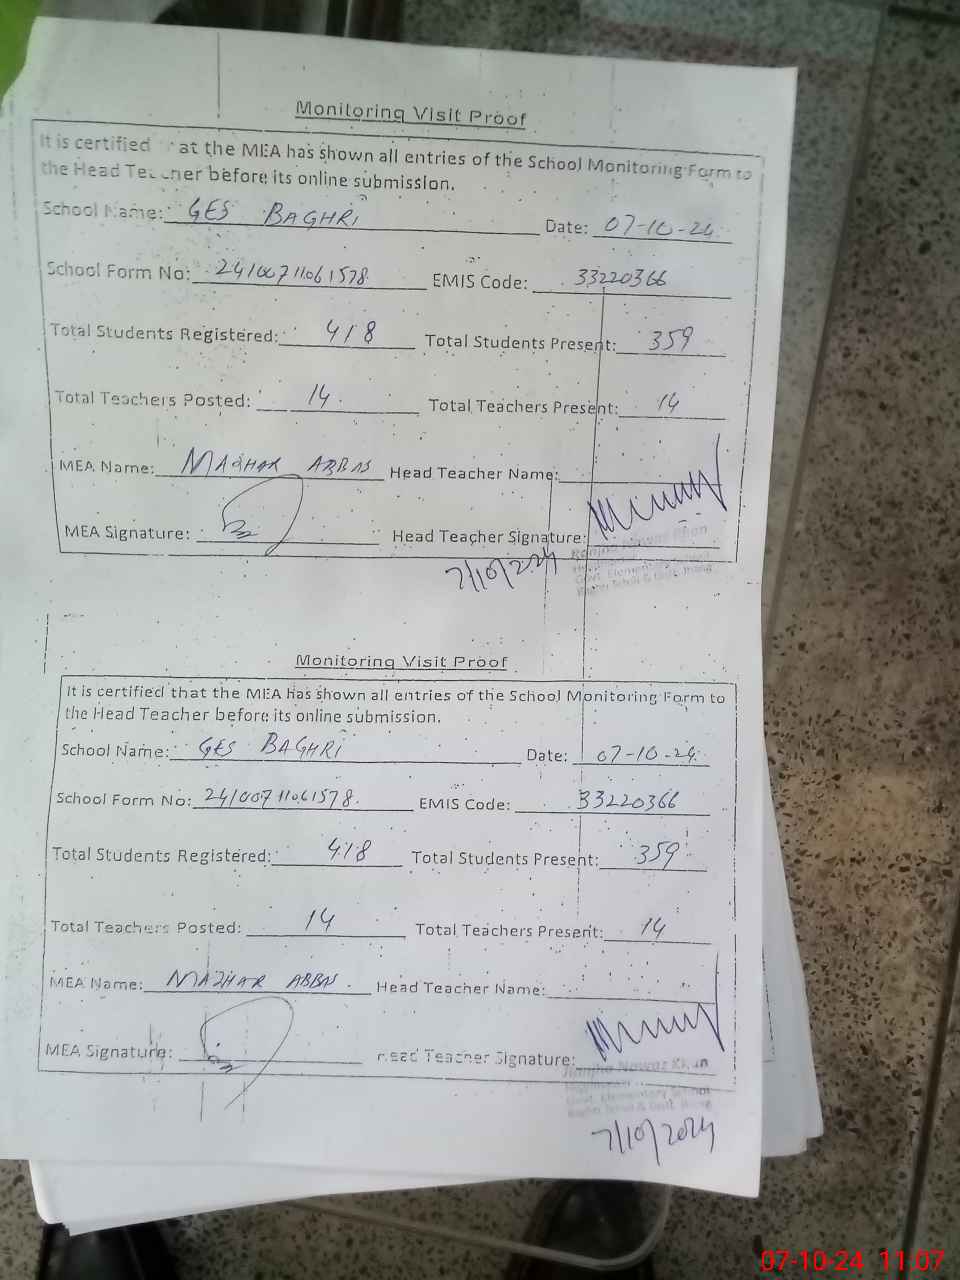 Monitoring Visit Proof
It is certified at the MEA has shown all entries of the School Monitoring Form to
the Head Teacher before its online submission.
School Name: GES BAGHRI Date: 07-10-24
School Form No: 24100711061578 EMIS Code: 33220366
Total Students Registered: 418 Total Students Present: 359
Total Teachers Posted: 14 Total Teachers Present: 14
MEA Name: MAZHAR ABBAS Head Teacher Name:
MEA Signature: Head Teacher Signature:
Nawaz Khan
7/10/2024
Govt. Elementary School
Monitoring Visit Proof
It is certified that the MEA has shown all entries of the School Monitoring Form to
the Head Teacher before its online submission.
School Name: GES BAGHRI Date: 07-10-24
School Form No: 24100711061578 EMIS Code: 33220366
Total Students Registered: 418 Total Students Present: 359
Total Teachers Posted: 14 Total Teachers Present: 14
MEA Name: MAZHAR ABBAS Head Teacher Name:
MEA Signature: Head Teacher Signature:
Nawaz Khan
Govt. Elementary School
7/10/2024
07-10-24 11:07